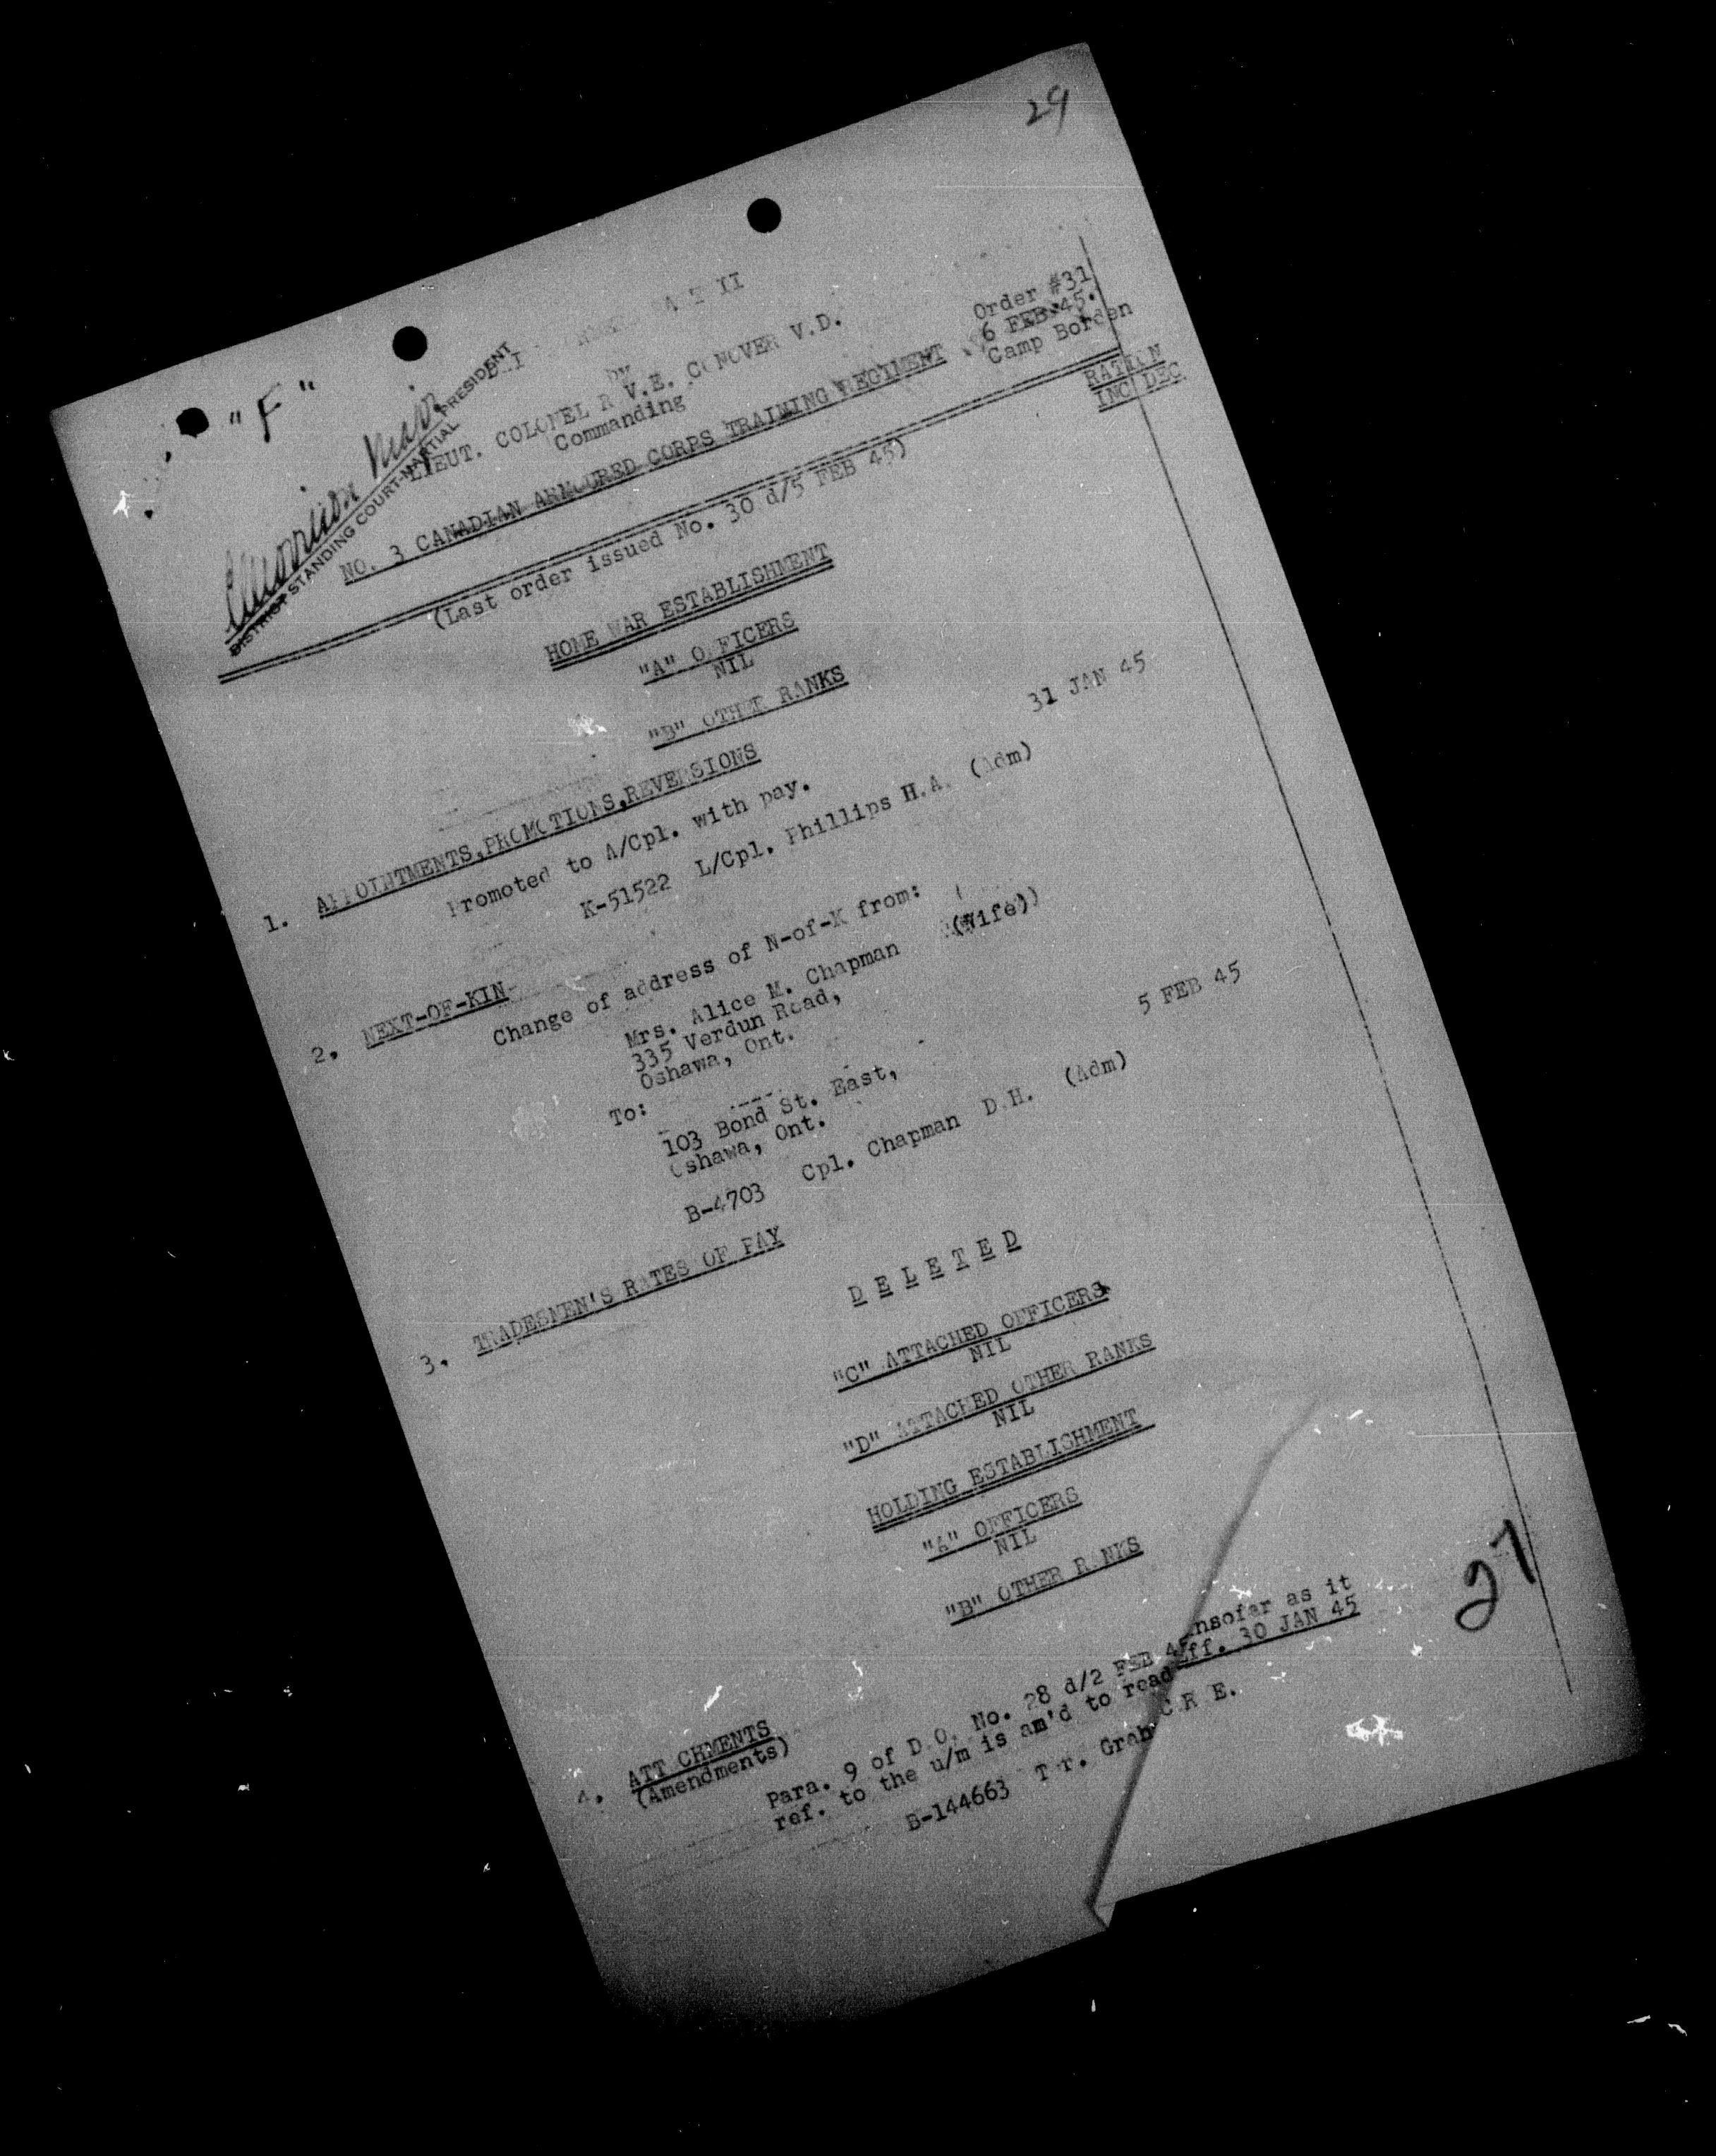 29
"F"
PRESIDENT
DISTRICT STANDING COURT-MARTIAL
II
LIEUT. COLONEL R V.E. CONOVER V.D.
Commanding
NO. 3 CANADIAN ARMOURED CORPS TRAINING REGIMENT
Order #31
6 FEB 45.
Camp Borden
RATION
INC DEC
(Last order issued No. 30 d/5 FEB 45)
HOME WAR ESTABLISHMENT
"A" OFFICERS
NIL
"B" OTHER RANKS
1. APPOINTMENTS, PROMOTIONS, REVERSIONS
Promoted to A/Cpl. with pay.
K-51522 L/Cpl. Phillips H.A. (Adm) 31 JAN 45
2. NEXT-OF-KIN
Change of address of N-of-K from:
Mrs. Alice M. Chapman (Wife)
335 Verdun Road,
Oshawa, Ont.
To:
103 Bond St. East,
Oshawa, Ont.
B-4703 Cpl. Chapman D.H. (Adm) 5 FEB 45
3. TRADESMEN'S RATES OF PAY
DELETED
"C" ATTACHED OFFICERS
NIL
"D" ATTACHED OTHER RANKS
NIL
HOLDING ESTABLISHMENT
"A" OFFICERS
NIL
"B" OTHER RANKS
4. ATTACHMENTS
(Amendments)
Para. 9 of D.O. No. 28 d/2 FEB 45 insofar as it
ref. to the u/m is am'd to read Eff. 30 JAN 45
B-144663 C R E.
27